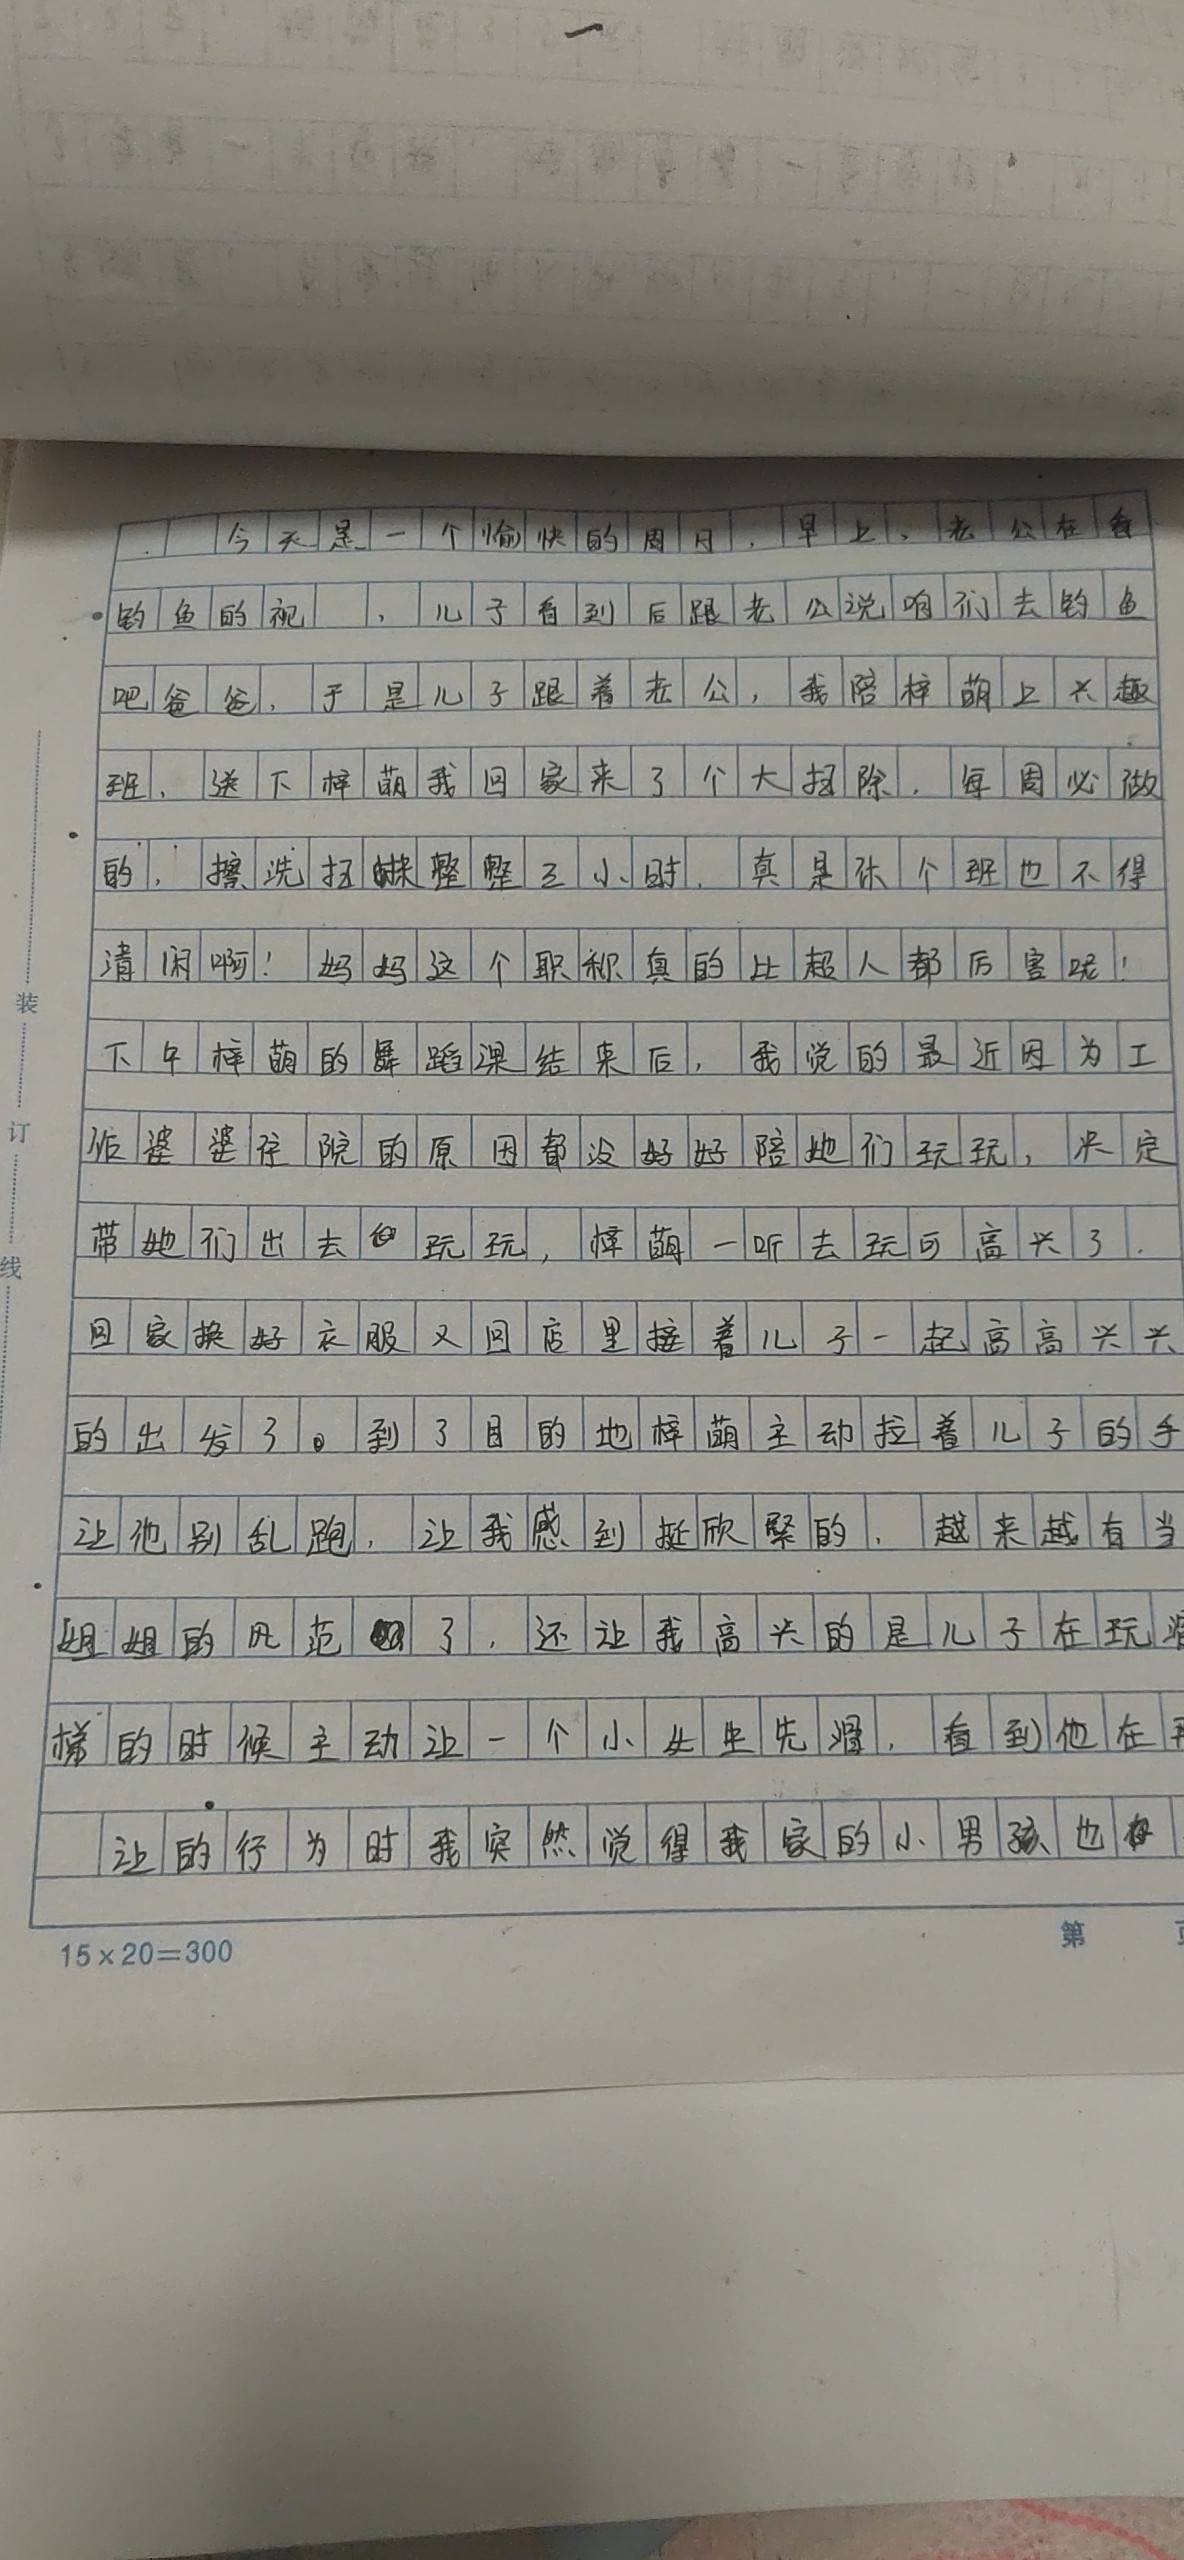 一
今天是一个愉快的周日,早上,老公在看
钓鱼的视 ,儿子看到后跟老公说咱们去钓鱼
吧爸爸,于是儿子跟着老公,我陪梓萌上兴趣
班,送下梓萌我回家来了个大扫除,每周必做
的,擦洗扫 整整三小时,真是休个班也不得
清闲啊!妈妈这个职称真的比超人都厉害呢!
下午梓萌的舞蹈课结束后,我觉的最近因为工
作婆婆住院的原因都没好好陪她们玩玩,决定
带她们出去 玩玩,梓萌一听去玩可高兴了.
回家换好衣服又回店里接着儿子一起高高兴兴
的出发了。到了目的地梓萌主动拉着儿子的手
让他别乱跑,让我感到挺欣 的,越来越有当
姐姐的风范 了,还让我高兴的是儿子在玩滑
梯的时候主动让一个小女生先滑,看到他在
让的行为时我突然觉得我家的小男孩也
装
订
线
15×20=300
第